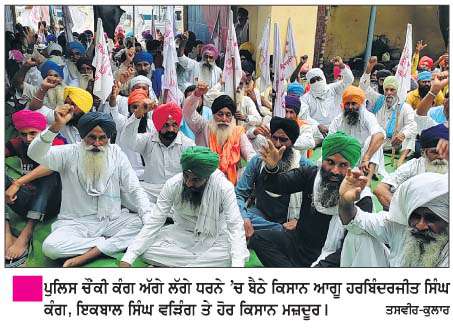 ਪੁਲਿਸ ਚੌਕੀ ਕੰਗ ਅੱਗੇ ਲੱਗੇ ਧਰਨੇ ’ਚ ਬੈਠੇ ਕਿਸਾਨ ਆਗੂ ਹਰਬਿੰਦਰਜੀਤ ਸਿੰਘ
ਕੰਗ, ਇਕਬਾਲ ਸਿੰਘ ਵੜਿੰਗ ਤੇ ਹੋਰ ਕਿਸਾਨ ਮਜ਼ਦੂਰ। ਤਸਵੀਰ-ਕੁਲਾਰ